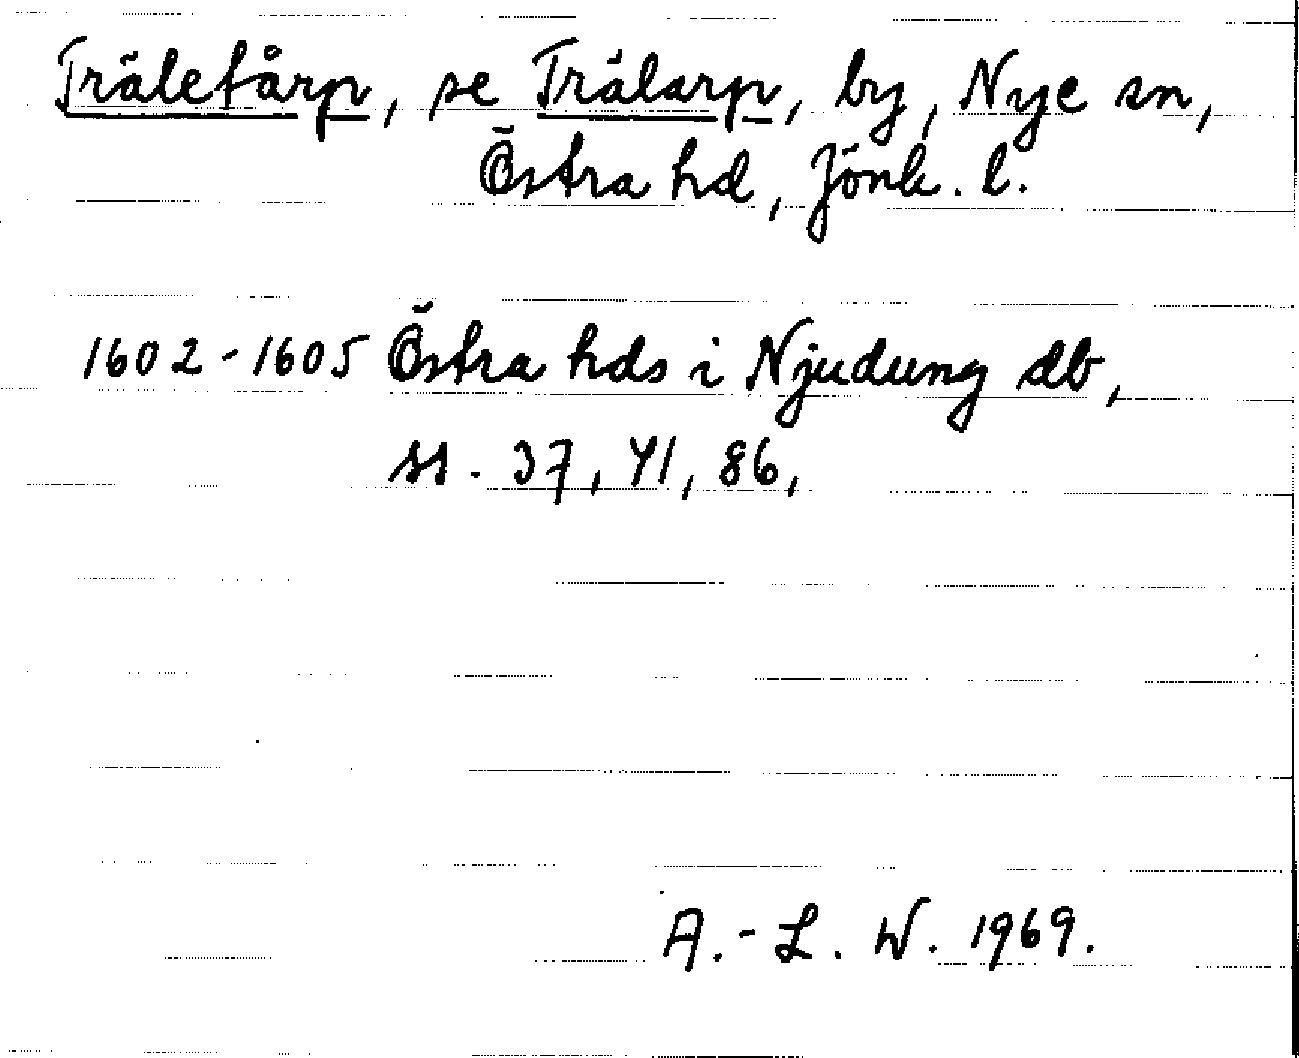 Träletårp, se Trälarp, by, Nye sn,
Östra hd, Jönk. l.
1602-1605 Östra hds i Njudung db,
ss. 37, 41, 86,
A.-L. W. 1969.